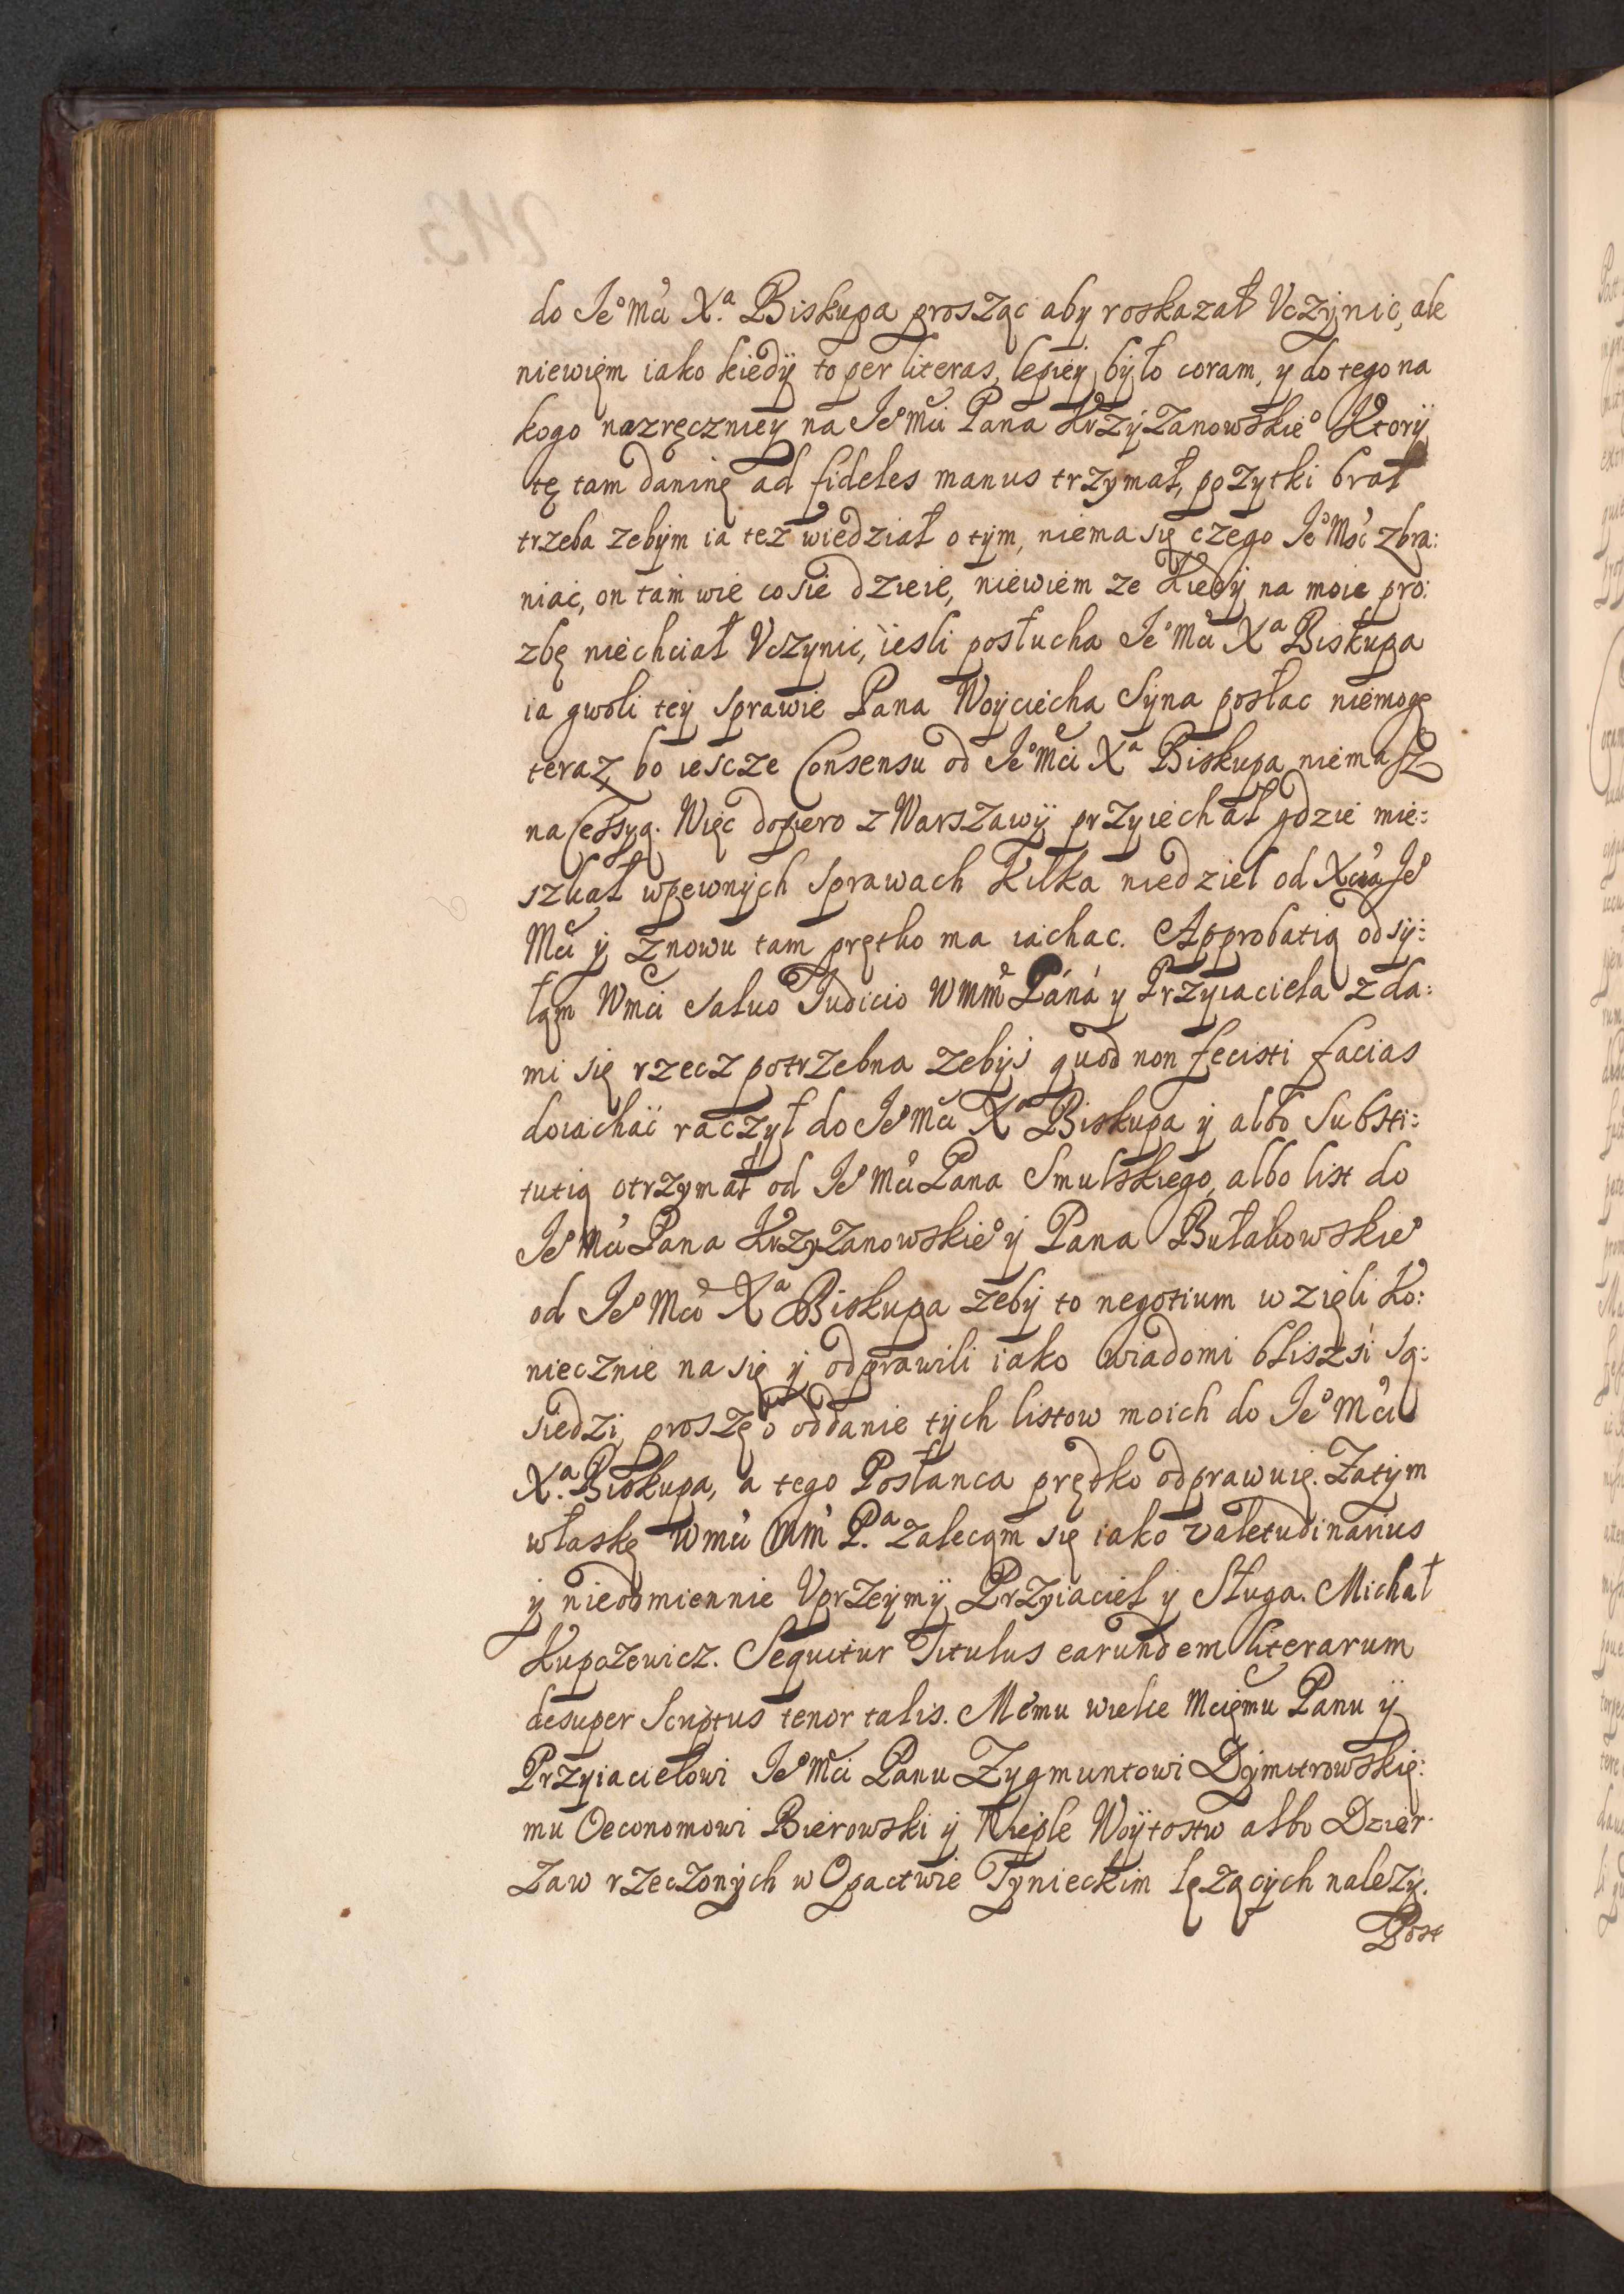 do Jeº Mći Xª. Biskupa prosząc aby roskazał Vczÿnic, ale
niewięm iako kiedÿ to per literas, lepieÿ było coram, y do tego na
kogo nazręczniey na Jeº Mći Pana Krzÿżanowskieº Ktorÿ
tę tam daninę ad fideles manus trzymał, pożytki brał
trzeba żebÿm ia też wiedział o tÿm, niema się czego Jeº Mść zbra:
niać, on tam wie co sie dzieie, niewiem że kiedÿ na moię pro:
zbę niechciał Vczynić, iesli posłucha Jeº Mći Xª Biskupa
ia gwoli teÿ sprawie Pana Woyciecha Sÿna posłac niemogę
teraz bo iescze Consensu od Jeº Mći Xª Biskupa niemasz
na Cessyą. Więc dopiero z Warszawÿ przyiechał gdzie mie:
szkał wpewnÿch sprawach kilka niedziel od Xcia Jeº
Mći ÿ znowu tam prętko ma iachac. Approbatią odsÿ:
łąm Wmći Saluo Judicio WMMº Páná y Przyiaciela zda:
mi się rzecz potrzebna żebÿś quod non fecisti facias
doiachać raczył do Jeº Mći Xª Biskupa ÿ albo Substi:
tutią otrzymał od Jeº Mći Pana Smulskiego, albo list do
Jeº Mći Pana Krzyżanowskieº ÿ Pana Bułakowskieº
od Jeº Mći Xª Biskupa żebÿ to negotium wzięli ko:
niecznie na się ÿ odprawili iako wiadomi bliszsi Są:
siedzi, proszę o oddanie tÿch listow moich do Jeº Mći
Xª. Biskupa, a tego Posłanca prędko odprawuię. Zatÿm
właskę Wmći MM P.ª zalecąm się iako valetudinarius
ÿ nieodmiennie Vprzeÿmÿ Przyiaciel ÿ Sługa. Michał
Kupożewicz. Sequitur Titulus earundem literarum
desuper Scriptus tenor talis. Memu wielce Mcięmu Panu ÿ
Przyiacielowi Jeº Mći Panu Zygmuntowi Dÿmitrowskię:
mu Oeconomowi Bierowski ÿ Nieple Woÿtostw albo Dzier:
żaw rzeczonÿch w Opactwie Tynieckim lężącÿch należÿ.
Post